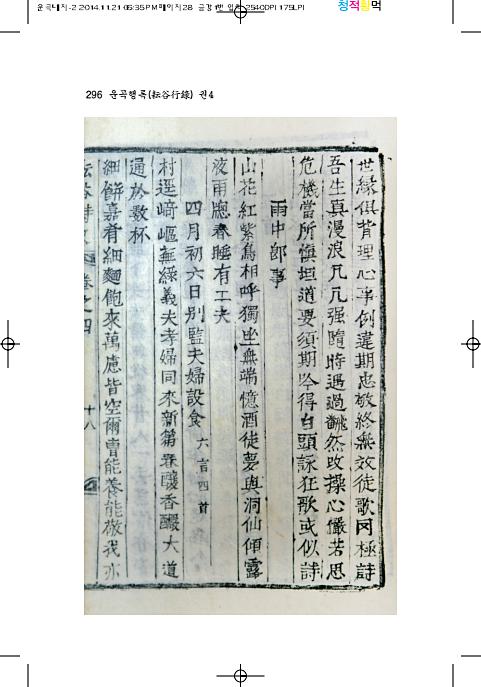 운곡내지-2 2014.11.21 05:35 PM 페이지28
2540DPI 175LPI
청적황먹
296 운곡행록(耘谷行錄) 권4
世緣俱背理心事例違期忠敬終無效徒歌罔極詩
吾生真漫浪凡凡强隨時遇過飜然改操心儼若思
危機當所愼坦道要須期吟得白頭詠狂歌或似詩
雨中卽事
山花紅紫鳥相呼獨坐無端憶酒徒夢與洞仙傾露
液雨牕春睡有工夫
四月初六日別監夫婦設食 六言四首
村逕﨑嶇無緣義夫孝婦同來新蒭春釀香醲大道
通於數杯
細餠嘉肴細麵飽來萬慮皆空爾曹能養能敬我亦
卷之四
十八